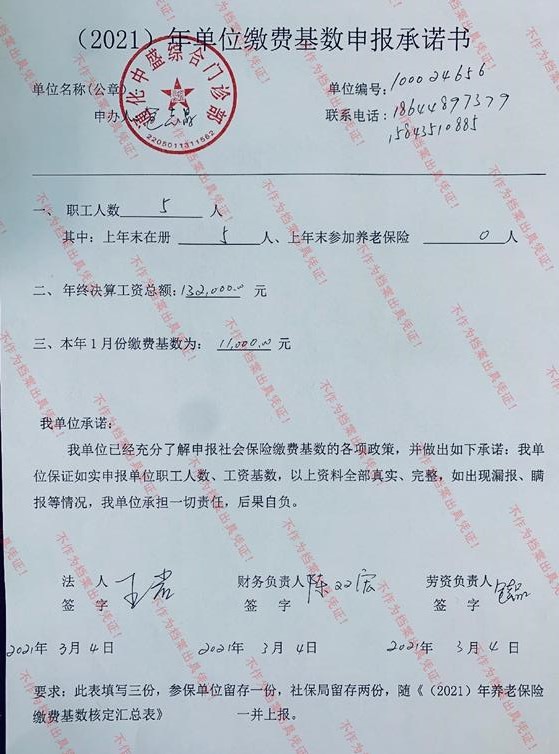 （2021）年单位缴费基数申报承诺书
单位名称(公章) 单位编号:100024656
申办人 联系电话:18644897379
15843510885
中盛综合门诊部
2205011311562
一、 职工人数 5 人
其中：上年末在册 5 人、上年末参加养老保险 0 人
二、年终决算工资总额:132,000.00 元
三、本年1月份缴费基数为： 11,000.00 元
我单位承诺：
我单位已经充分了解申报社会保险缴费基数的各项政策，并做出如下承诺：我单
位保证如实申报单位职工人数、工资基数，以上资料全部真实、完整，如出现漏报、瞒
报等情况，我单位承担一切责任，后果自负。
法 人 财务负责人 劳资负责人
签 字 签 字 签 字
2021年 3月 4日 2021年 3月 4日 2021年 3月 4日
要求：此表填写三份，参保单位留存一份，社保局留存两份，随《（2021）年养老保险
缴费基数核定汇总表》 一并上报。
不作为档案出具凭证！